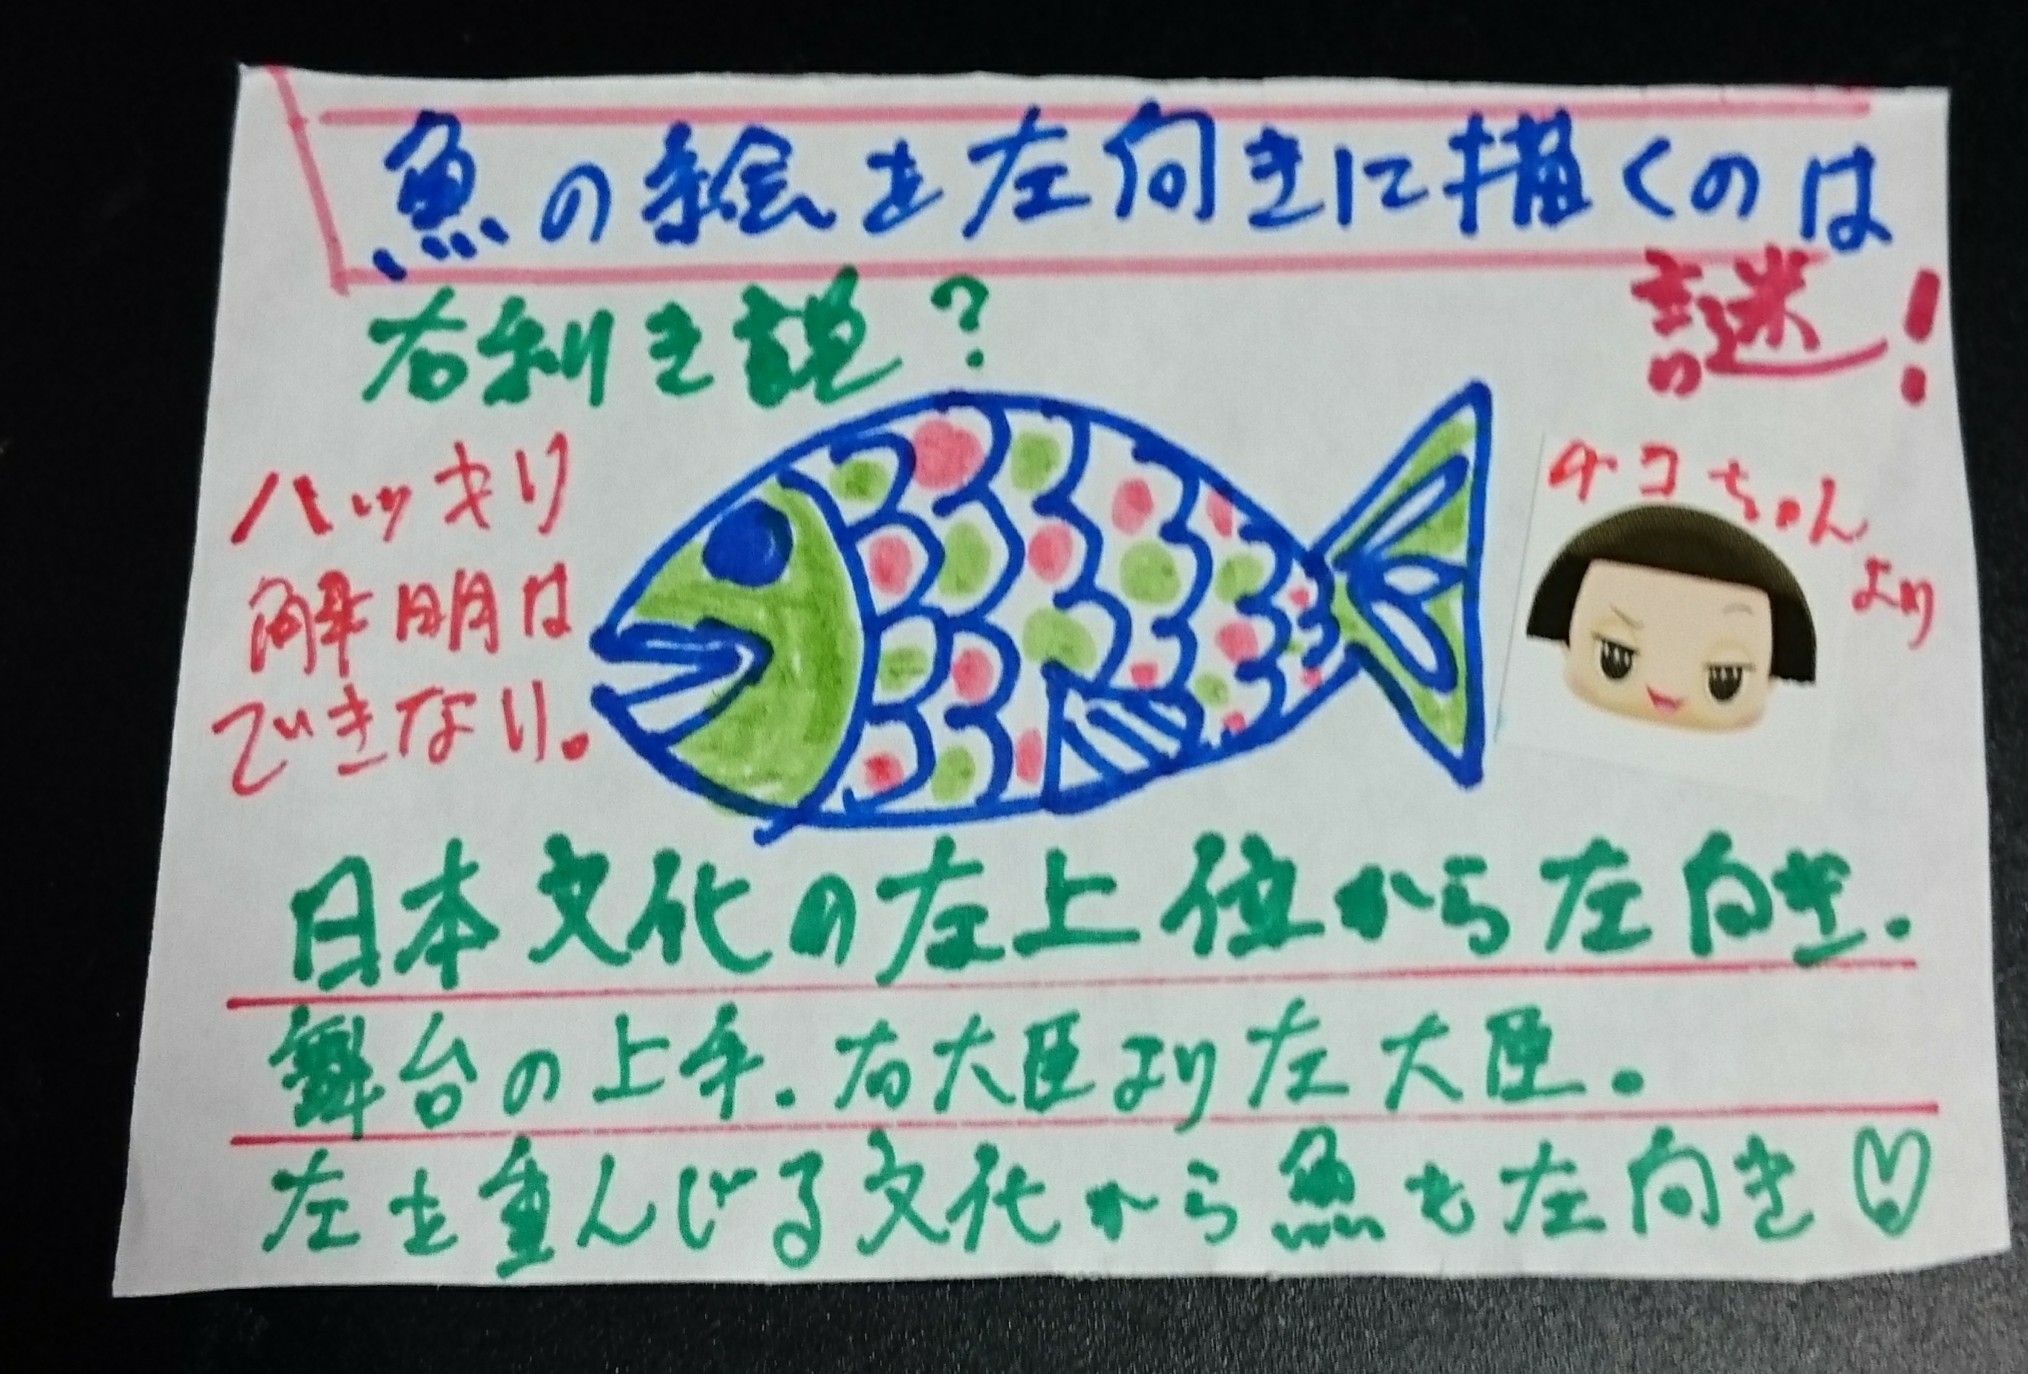 魚の絵を左向きに描くのは
謎!
右利き説?
ハッキリ
解明は
できなり。
チコちゃん
より
日本文化の左上位から左向き.
舞台の上手.右大臣より左大臣.
左を重んじる文化から魚も左向き♡